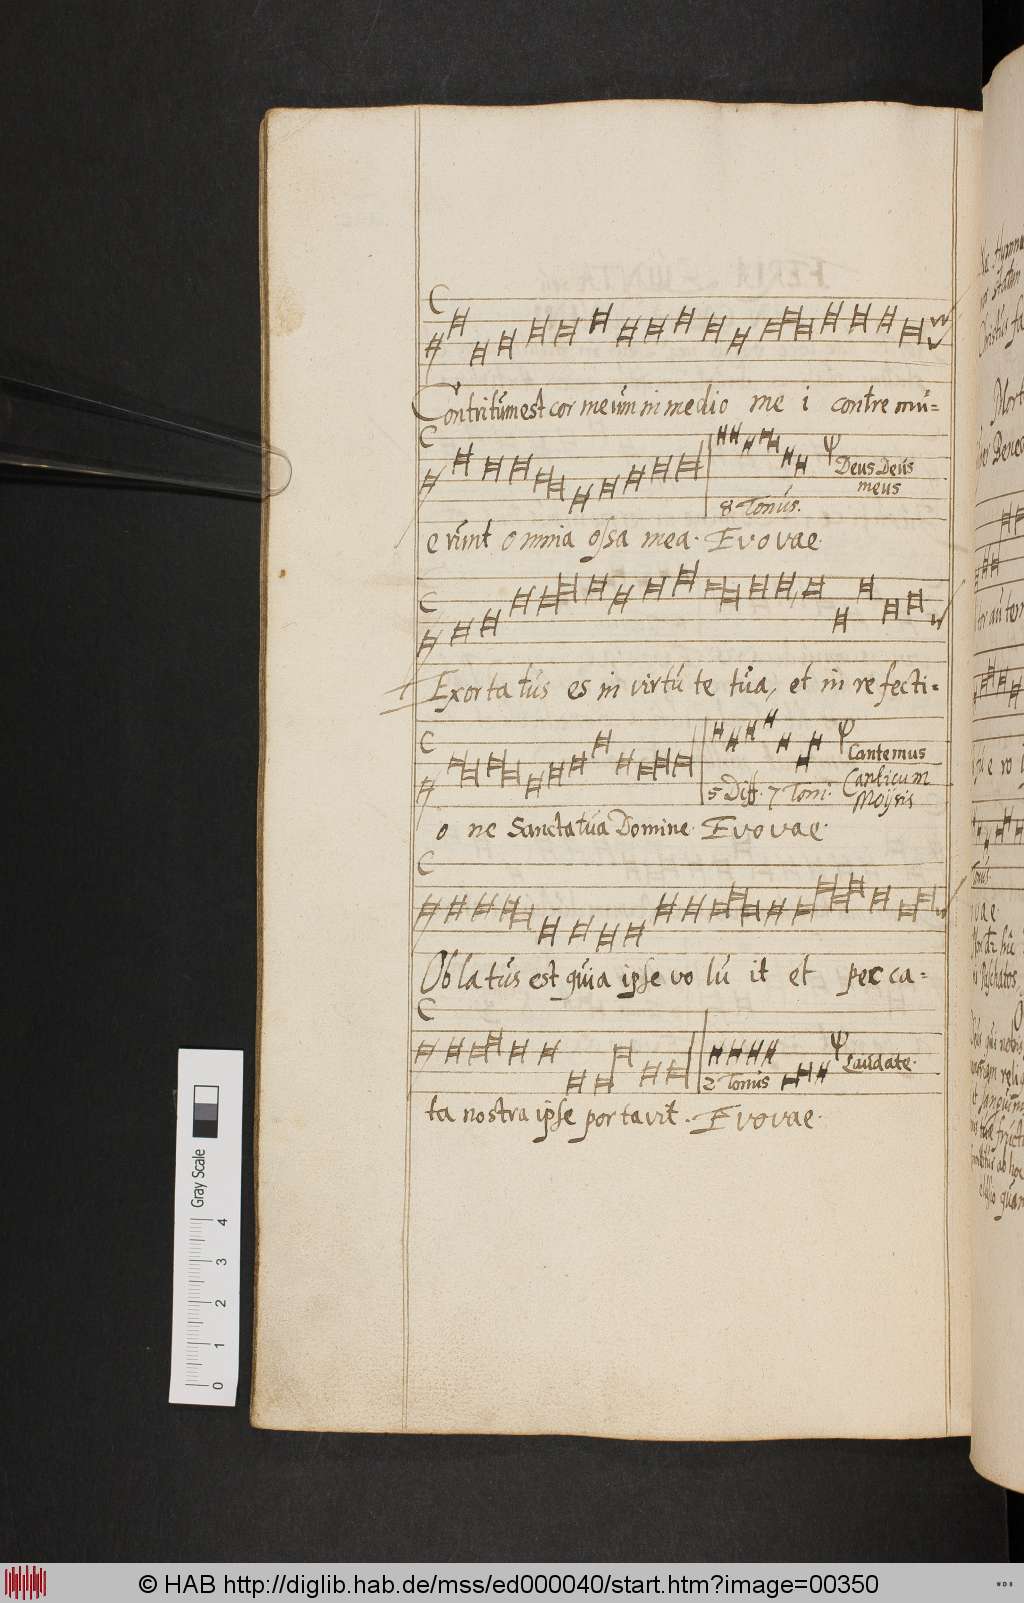 Contritum est cor meum in medio me i contre mu=
Deus Deus
meus
8 Tonus.
erunt omnia ossa mea. Evovae.
Exortatus es in virtute tua, et in refecti=
Cantemus
Canticum
Moysis
5 Diff. 7 Toni.
o ne Sancta tua Domine. Evovae.
Oblatus est quia ipse voluit et pecca=
Laudate.
2 Tonus
ta nostra ipse portavit. Evovae.
Gray Scale
0 1 2 3 4
© HAB http://diglib.hab.de/mss/ed000040/start.htm?image=00350